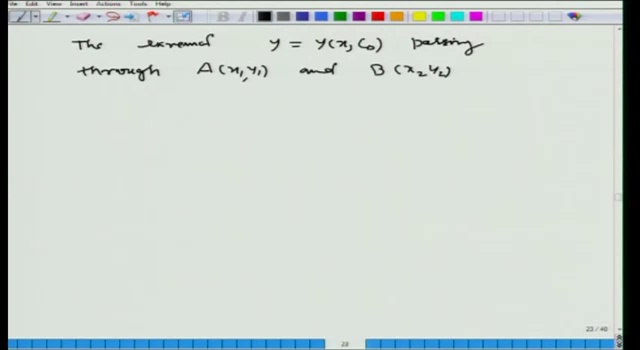 File Edit View Insert Actions Tools Help
The extremal y = y(x, C₀) passing
through A(x₁, y₁) and B(x₂ y₂)
23 / 40
23